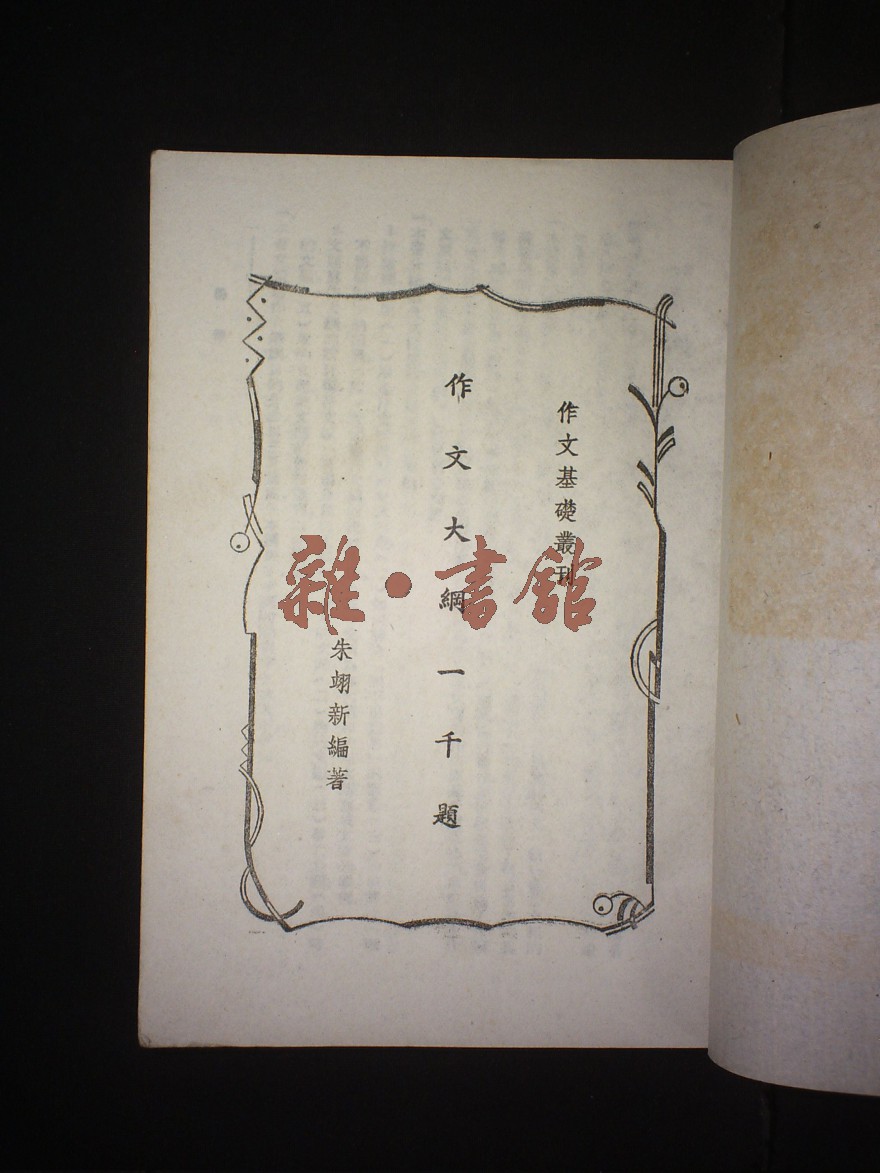 作文基礎叢刊
作文大綱一千題
朱翊新編著
雜·書館